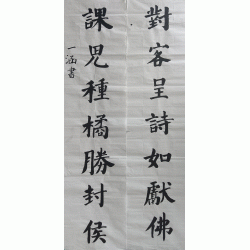 對客呈詩如獻佛
課兒種橘勝封侯
一涵書